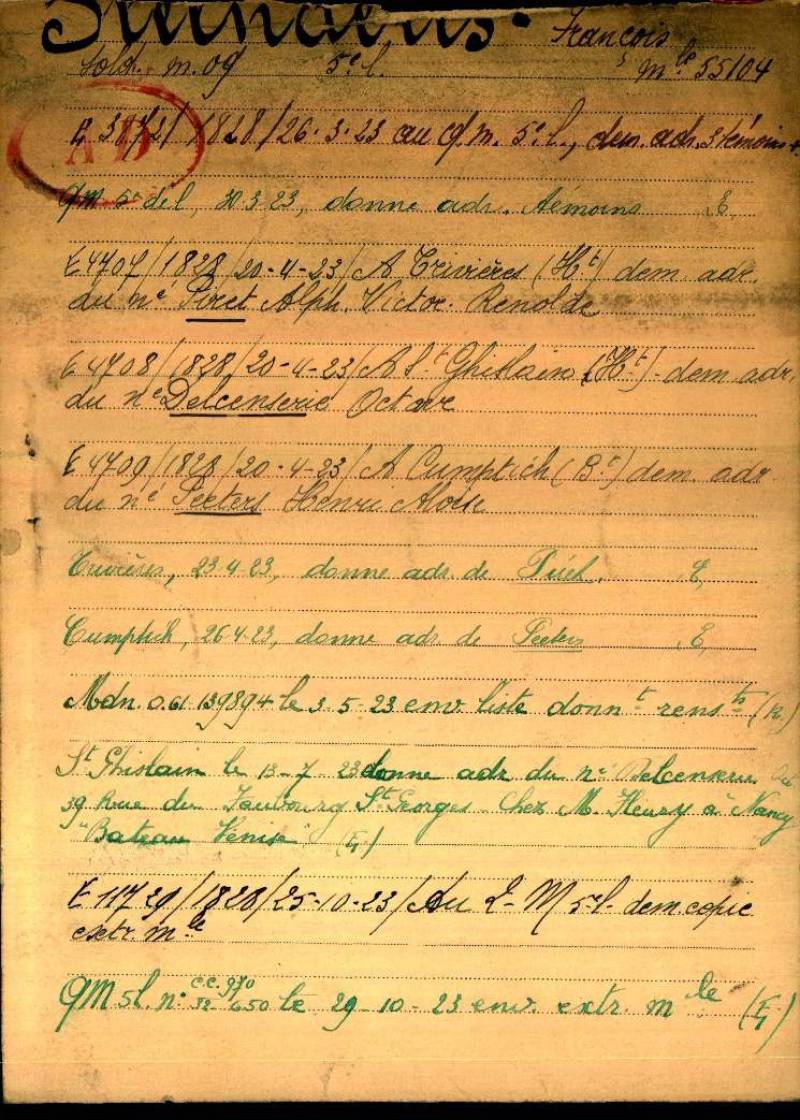 François
Sold. m. 09 5e l. mle 55104
AD
E 3872/1828/26-3-23 au QM. 5e l., dem. adr. 3 témoins +
QM 5e de l, 30 3 23, donne adr. témoins E,
E 4707/1828/20-4-23/A Trivières (Ht) dem. adr.
du né Piret Alph. Victor. Renolde
E 4708/1828/20-4-23/A St Ghislain (Ht) dem adr.
du né Delcenserie Octave
E 4709/1828/20-4-23/A Cumptich (Bt) dem. adr
du né Peeters Henri Aloïs
Trivières, 23-4-23, donne adr. de Piret. E,
Cumptich, 26-4-23, donne adr. de Peeters E,
Mdn. 0.61 139894 le 3-5-23 env. liste donnt rensts (R)
St Ghislain le 13-7-23 donne adr du né Delcenserie
39 Rue du Faubourg St Georges chez M. Fleury à Nancy
"Bateau Venise" (E)
E 11729/1828/25-10-23/Au Q-M 5e l- dem. copie
extr. mle
QM 5l. n° C.C. 970
32-650 le 29-10-23 env. extr. mle (E)